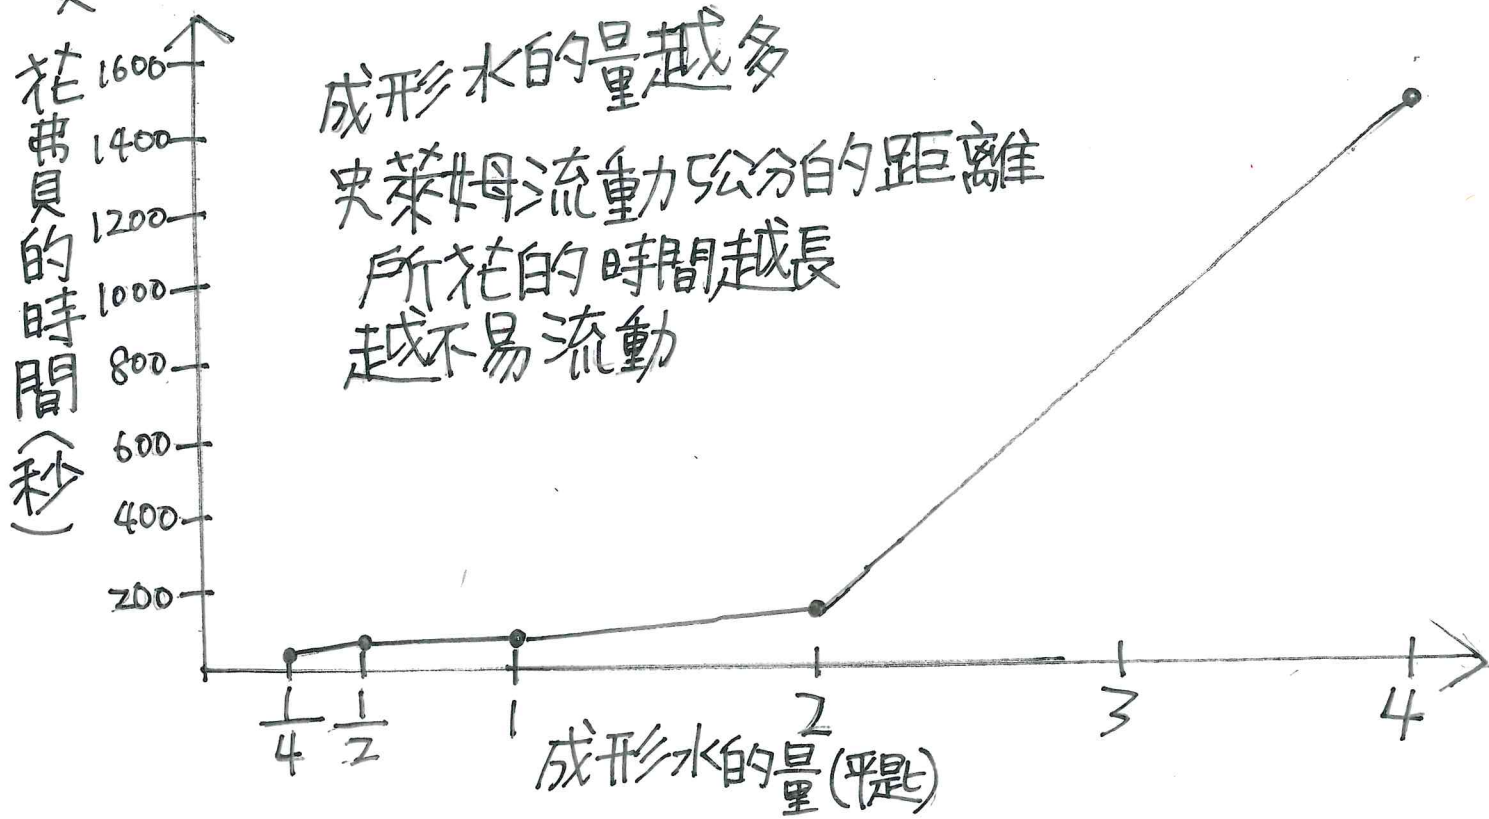 花費的時間(秒)
1600
1400
1200
1000
800
600
400
200
成形水的量越多
史萊姆流動5公分的距離
所花的時間越長
越不易流動
1/4 1/2 1 2 3 4
成形水的量(平匙)